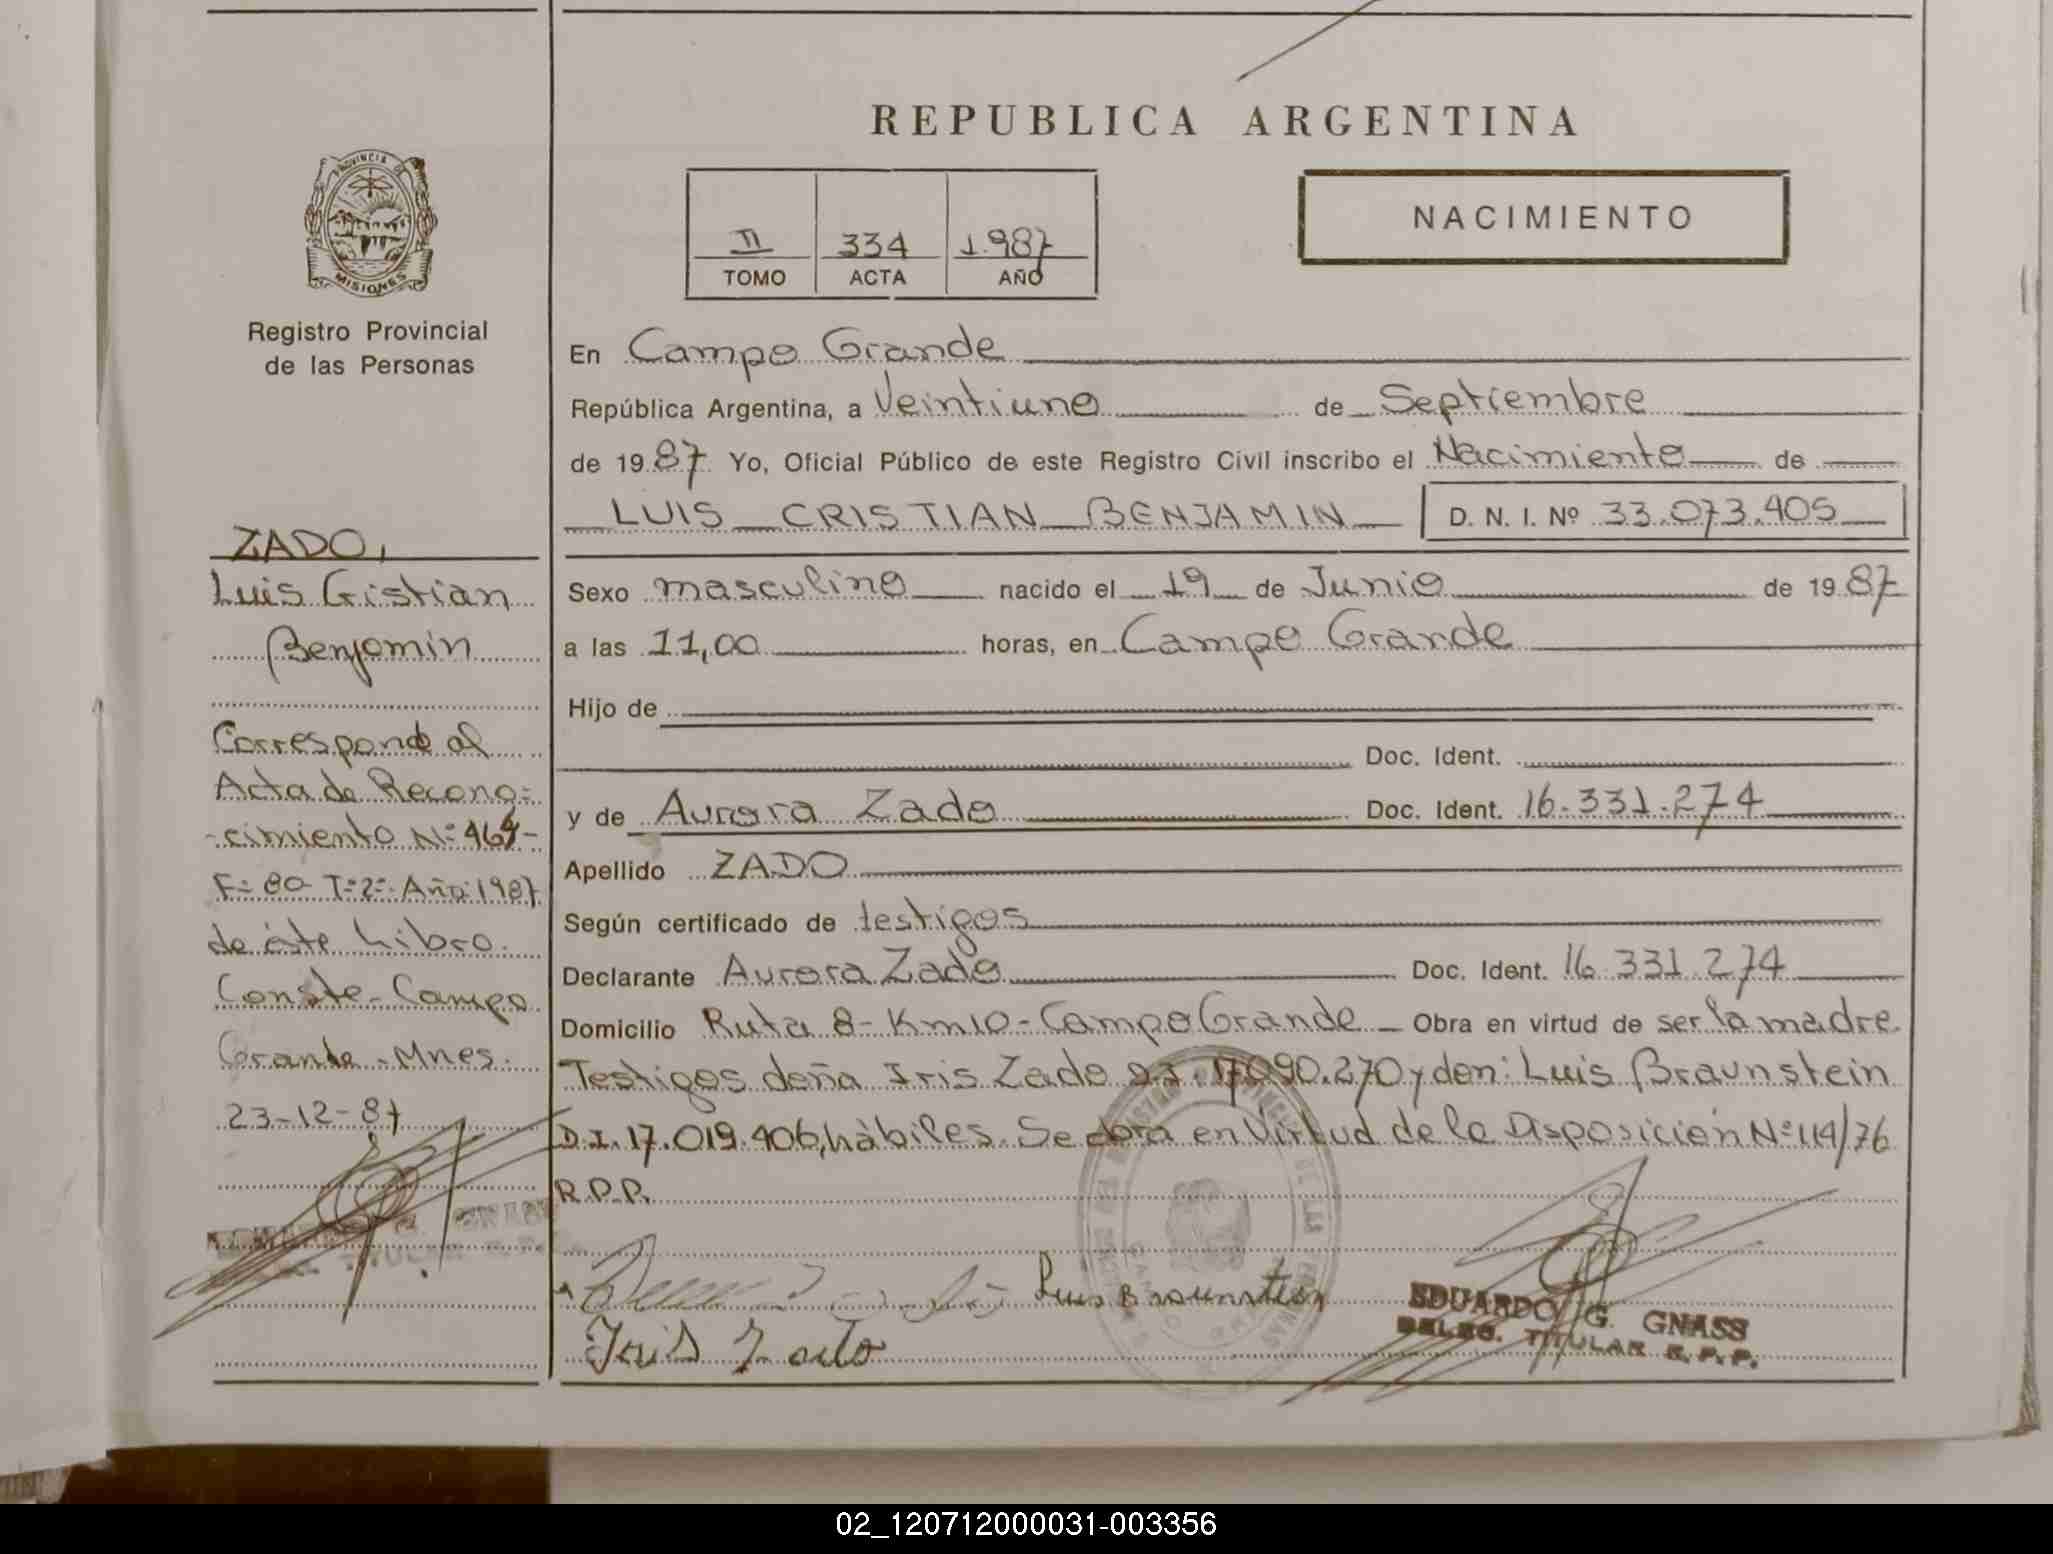 REPUBLICA ARGENTINA
PROVINCIA DE
MISIONES
Registro Provincial
de las Personas
II 334 1.987
TOMO ACTA AÑO
NACIMIENTO
En Campo Grande
República Argentina, a Veintiuno de Septiembre
de 19 87 Yo, Oficial Público de este Registro Civil inscribo el Nacimiento de
LUIS CRISTIAN BENJAMIN D. N. I. Nº 33.073.405
Sexo masculino nacido el 19 de Junio de 19 87
a las 11,00 horas, en Campo Grande
Hijo de
Doc. Ident.
y de Aurora Zado Doc. Ident. 16.331.274
Apellido ZADO
Según certificado de testigos
Declarante Aurora Zado Doc. Ident. 16.331.274
Domicilio Ruta 8 - Km 10 - Campo Grande Obra en virtud de ser la madre
Testigos doña Iris Zado D.I. 17.090.270 y don: Luis Braunstein
D.I. 17.019.406, hábiles. Se obra en Virtud de la Disposición Nº 114/76
R.P.P.
Luis Braunstein
Iris Zado
EDUARDO G. GNASS
DELEG. TITULAR R.P.P.
ZADO,
Luis Cristian
Benjamin
Correspond al
Acta de Recono=
-cimiento Nº 464-
F= 80 T=2= Año 1987
de éste Libro.
Conste - Campo
Grande - Mnes.
23-12-87
02_120712000031-003356